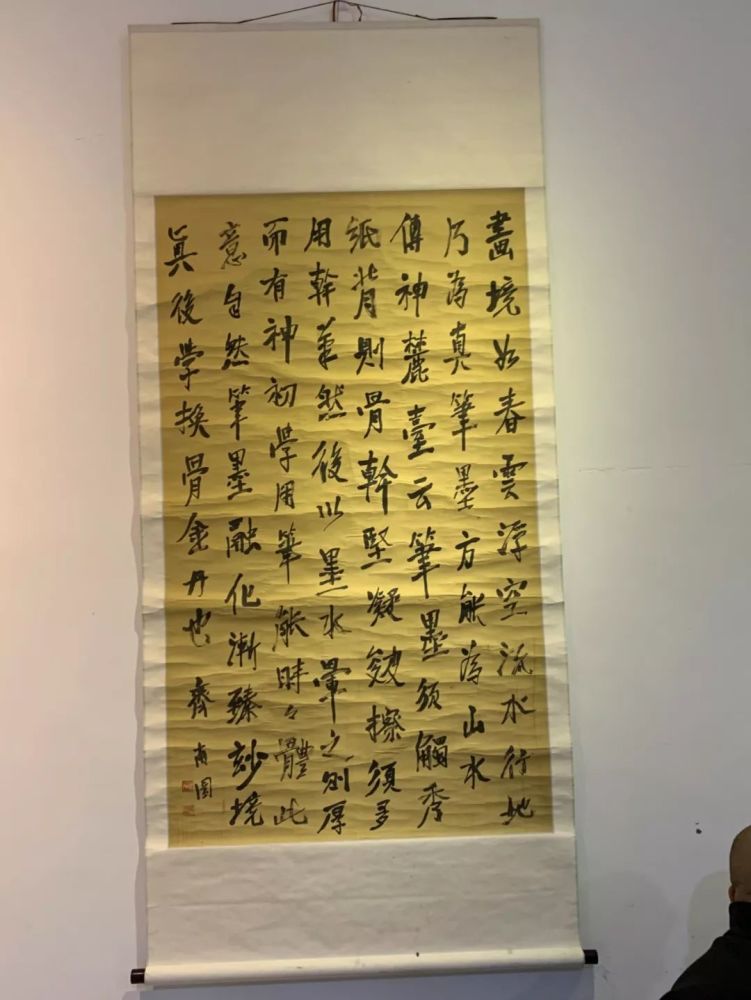 畫境如春雲浮空流水行地
乃為真筆墨方能為山水
傳神麓臺云筆墨須觸秀
紙背則骨幹堅凝皴擦須多
用幹筆然後以墨水暈之則厚
而有神初學用筆能時々體此
意自然筆墨融化漸臻玅境
眞後学換骨金丹也 齊